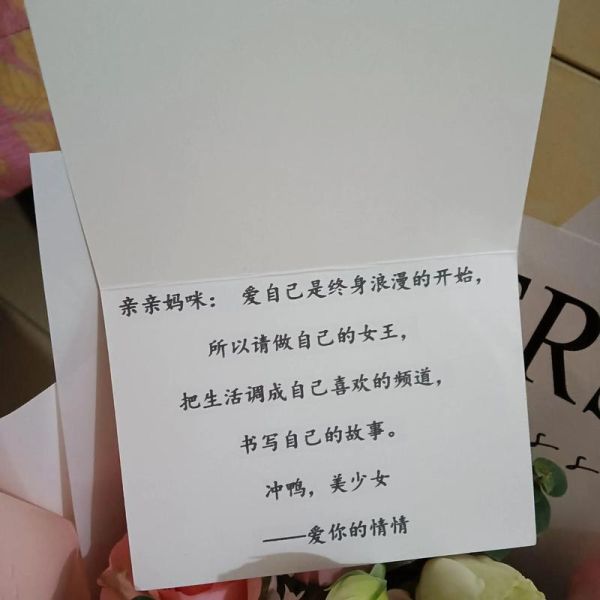 亲亲妈咪： 爱自己是终身浪漫的开始，
所以请做自己的女王，
把生活调成自己喜欢的频道，
书写自己的故事。
冲鸭，美少女
——爱你的情情